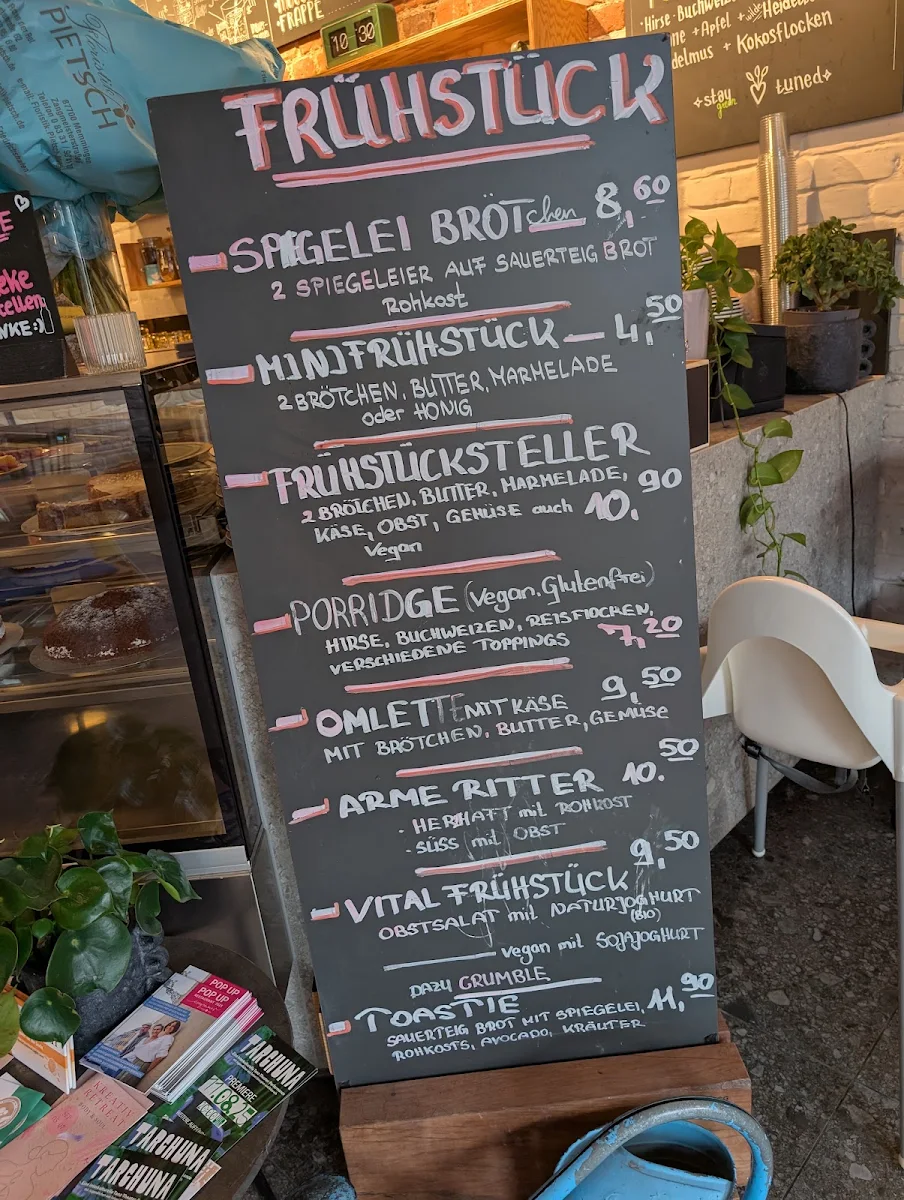 FRAPPE
10 30
Hirse · Buchwei
+ Apfel + wilde Heidel
delmus + Kokosflocken
stay green tuned
PIETSCH
87700 Memmingen
FRÜHSTÜCK
SPIGELEI BRÖTchen 8,60
2 SPIEGELEIER AUF SAUERTEIG BROT
Rohkost
MINIFRÜHSTÜCK — 4,50
2 BRÖTCHEN, BUTTER, MARMELADE
oder HONIG
FRÜHSTÜCKSTELLER
2 BRÖTCHEN, BUTTER, MARMELADE,
KÄSE, OBST, GEMÜSE auch 10,90
Vegan
PORRIDGE (Vegan. Glutenfrei)
HIRSE, BUCHWEIZEN, REISFLOCKEN,
VERSCHIEDENE TOPPINGS 7,20
OMLETTE MIT KÄSE 9,50
MIT BRÖTCHEN, BUTTER, GEMÜSE
ARME RITTER 10.50
- HERHAFT mit ROHKOST
- SÜSS mit OBST
VITAL FRÜHSTÜCK 9,50
OBSTSALAT mit NATURJOGHURT
(BIO)
vegan mit SOJAJOGHURT
DAZU CRUMBLE
TOASTIE 11,90
SAUERTEIG BROT MIT SPIEGELEI,
ROHKOSTS, AVOCADO, KRÄUTER
POP UP
POP UP
TARCHUNA
PREMIERE
TARCHUNA
TARCHUNA
KREATIV
RETREAT